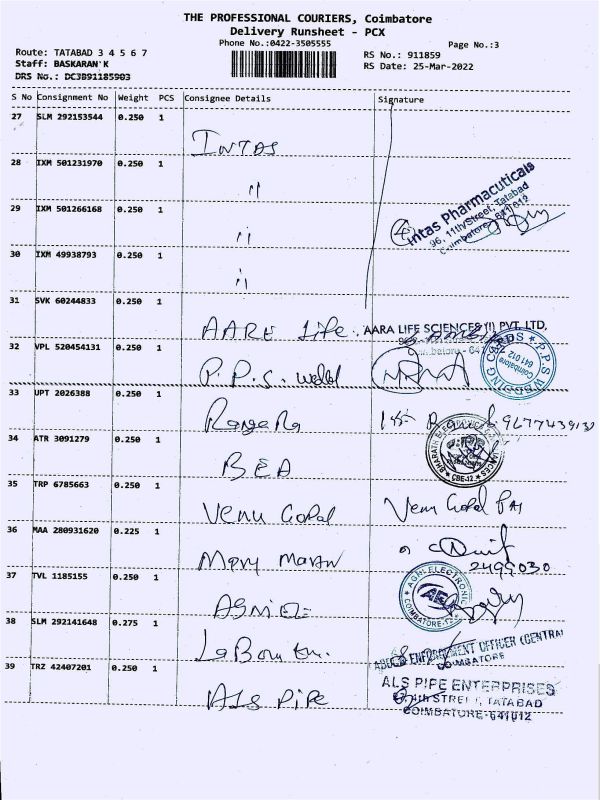 THE PROFESSIONAL COURIERS, Coimbatore
Delivery Runsheet - PCX
Phone No.:0422-3505555
Page No.:3
Route: TATABAD 3 4 5 6 7
RS No.: 911859
Staff: BASKARAN K
RS Date: 25-Mar-2022
DRS No.: DC3B91185903
S No Consignment No Weight PCS Consignee Details Signature
27 SLM 292153544 0.250 1
INTAS
28 IXM 501231970 0.250 1
"
29 IXM 501266168 0.250 1
"
Intas Pharmacuticals
96, 11th Street, Tatabad
Coimbatore - 641 012
30 IXM 49938793 0.250 1
"
31 SVK 60244833 0.250 1
AARE Life
AARA LIFE SCIENCES (I) PVT. LTD,
32 VPL 520454131 0.250 1
P.P.S. Wedd
P.P.S WEDDING CARDS
Coimbatore
641 012
33 UPT 2026388 0.250 1
34 ATR 3091279 0.250 1
BEA
CBE-12
35 TRP 6785663 0.250 1
Venu Gopal
Venu Gopal
36 MAA 280931620 0.225 1
Mery
2499030
37 TVL 1185155 0.250 1
AGNI ELECTRONIC
COIMBATORE-12
38 SLM 292141648 0.275 1
ENFORCEMENT OFFICER (CENTRAL
COIMBATORE
39 TRZ 42407201 0.250 1
ALS Pipe
ALS PIPE ENTERPRISES
STREET, TATABAD
COIMBATORE-641012